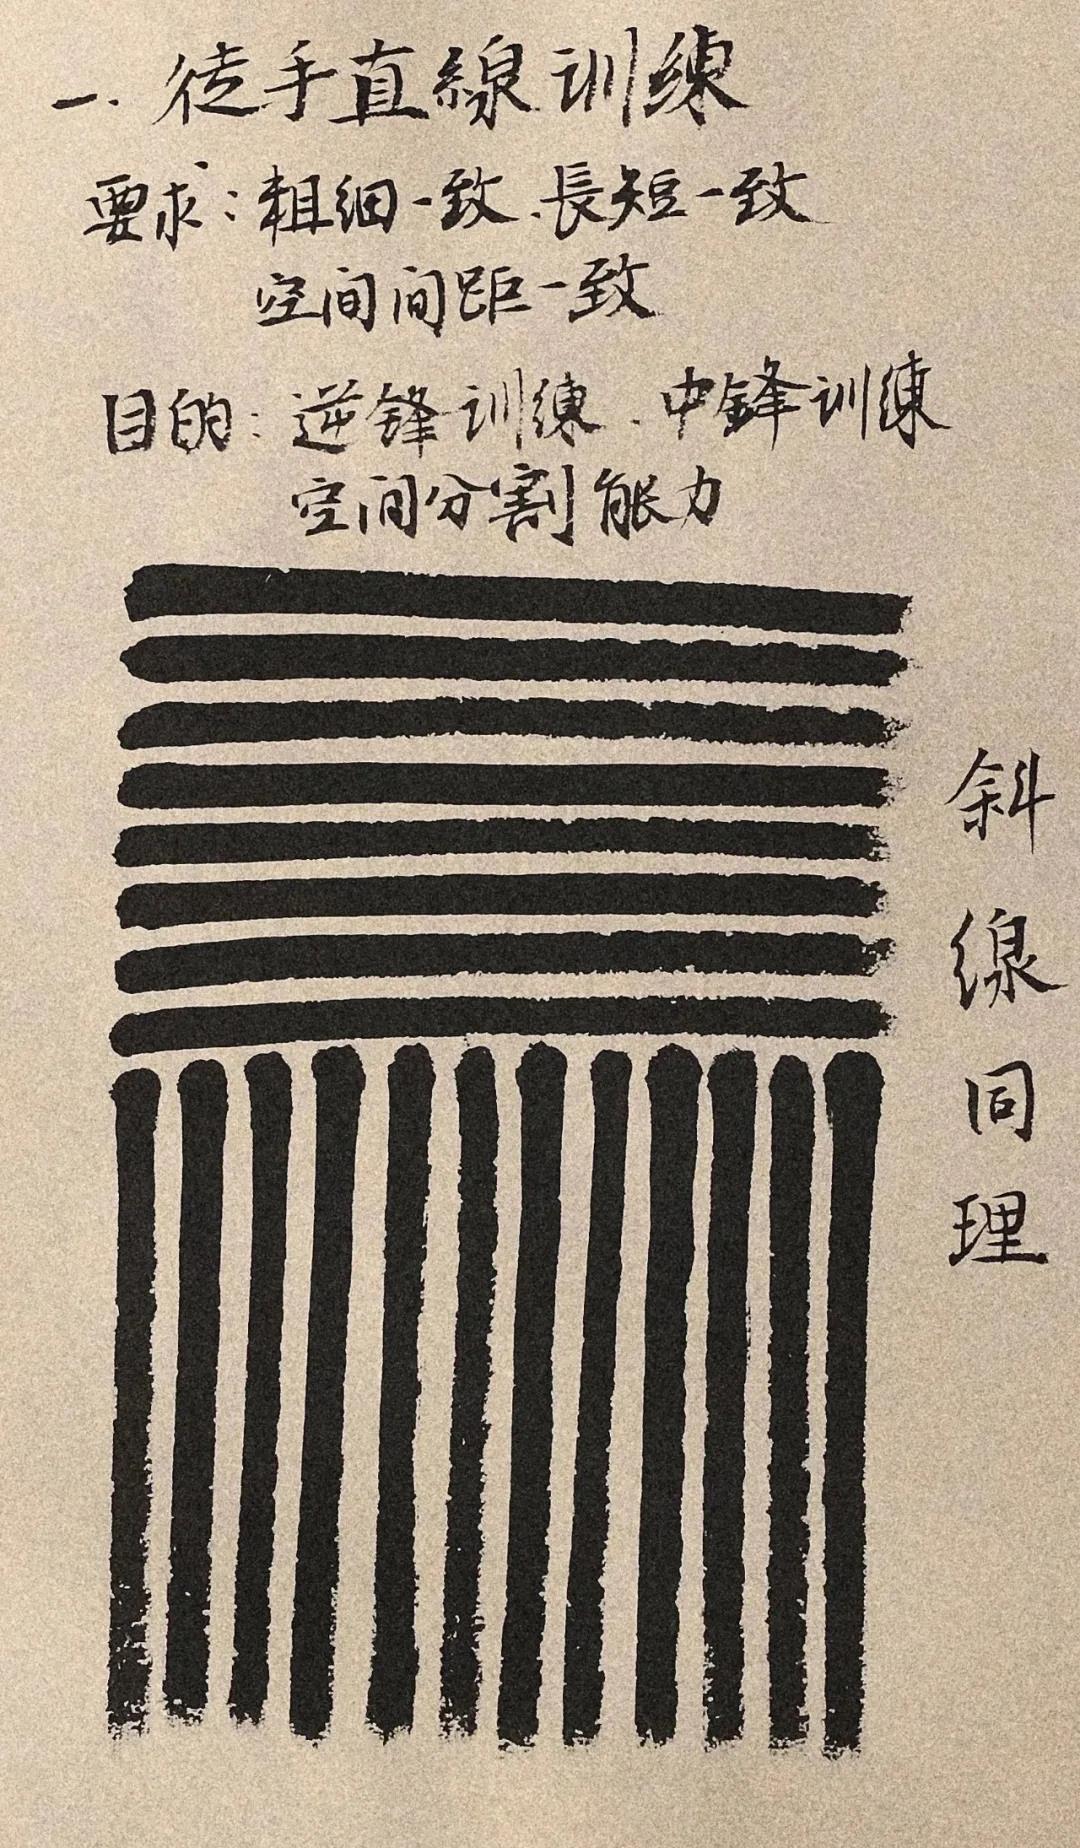 一.徒手直線训练
要求:粗细一致、長短一致
空间间距一致
目的:逆锋训练、中锋训练
空间分割能力
斜
線
同
理